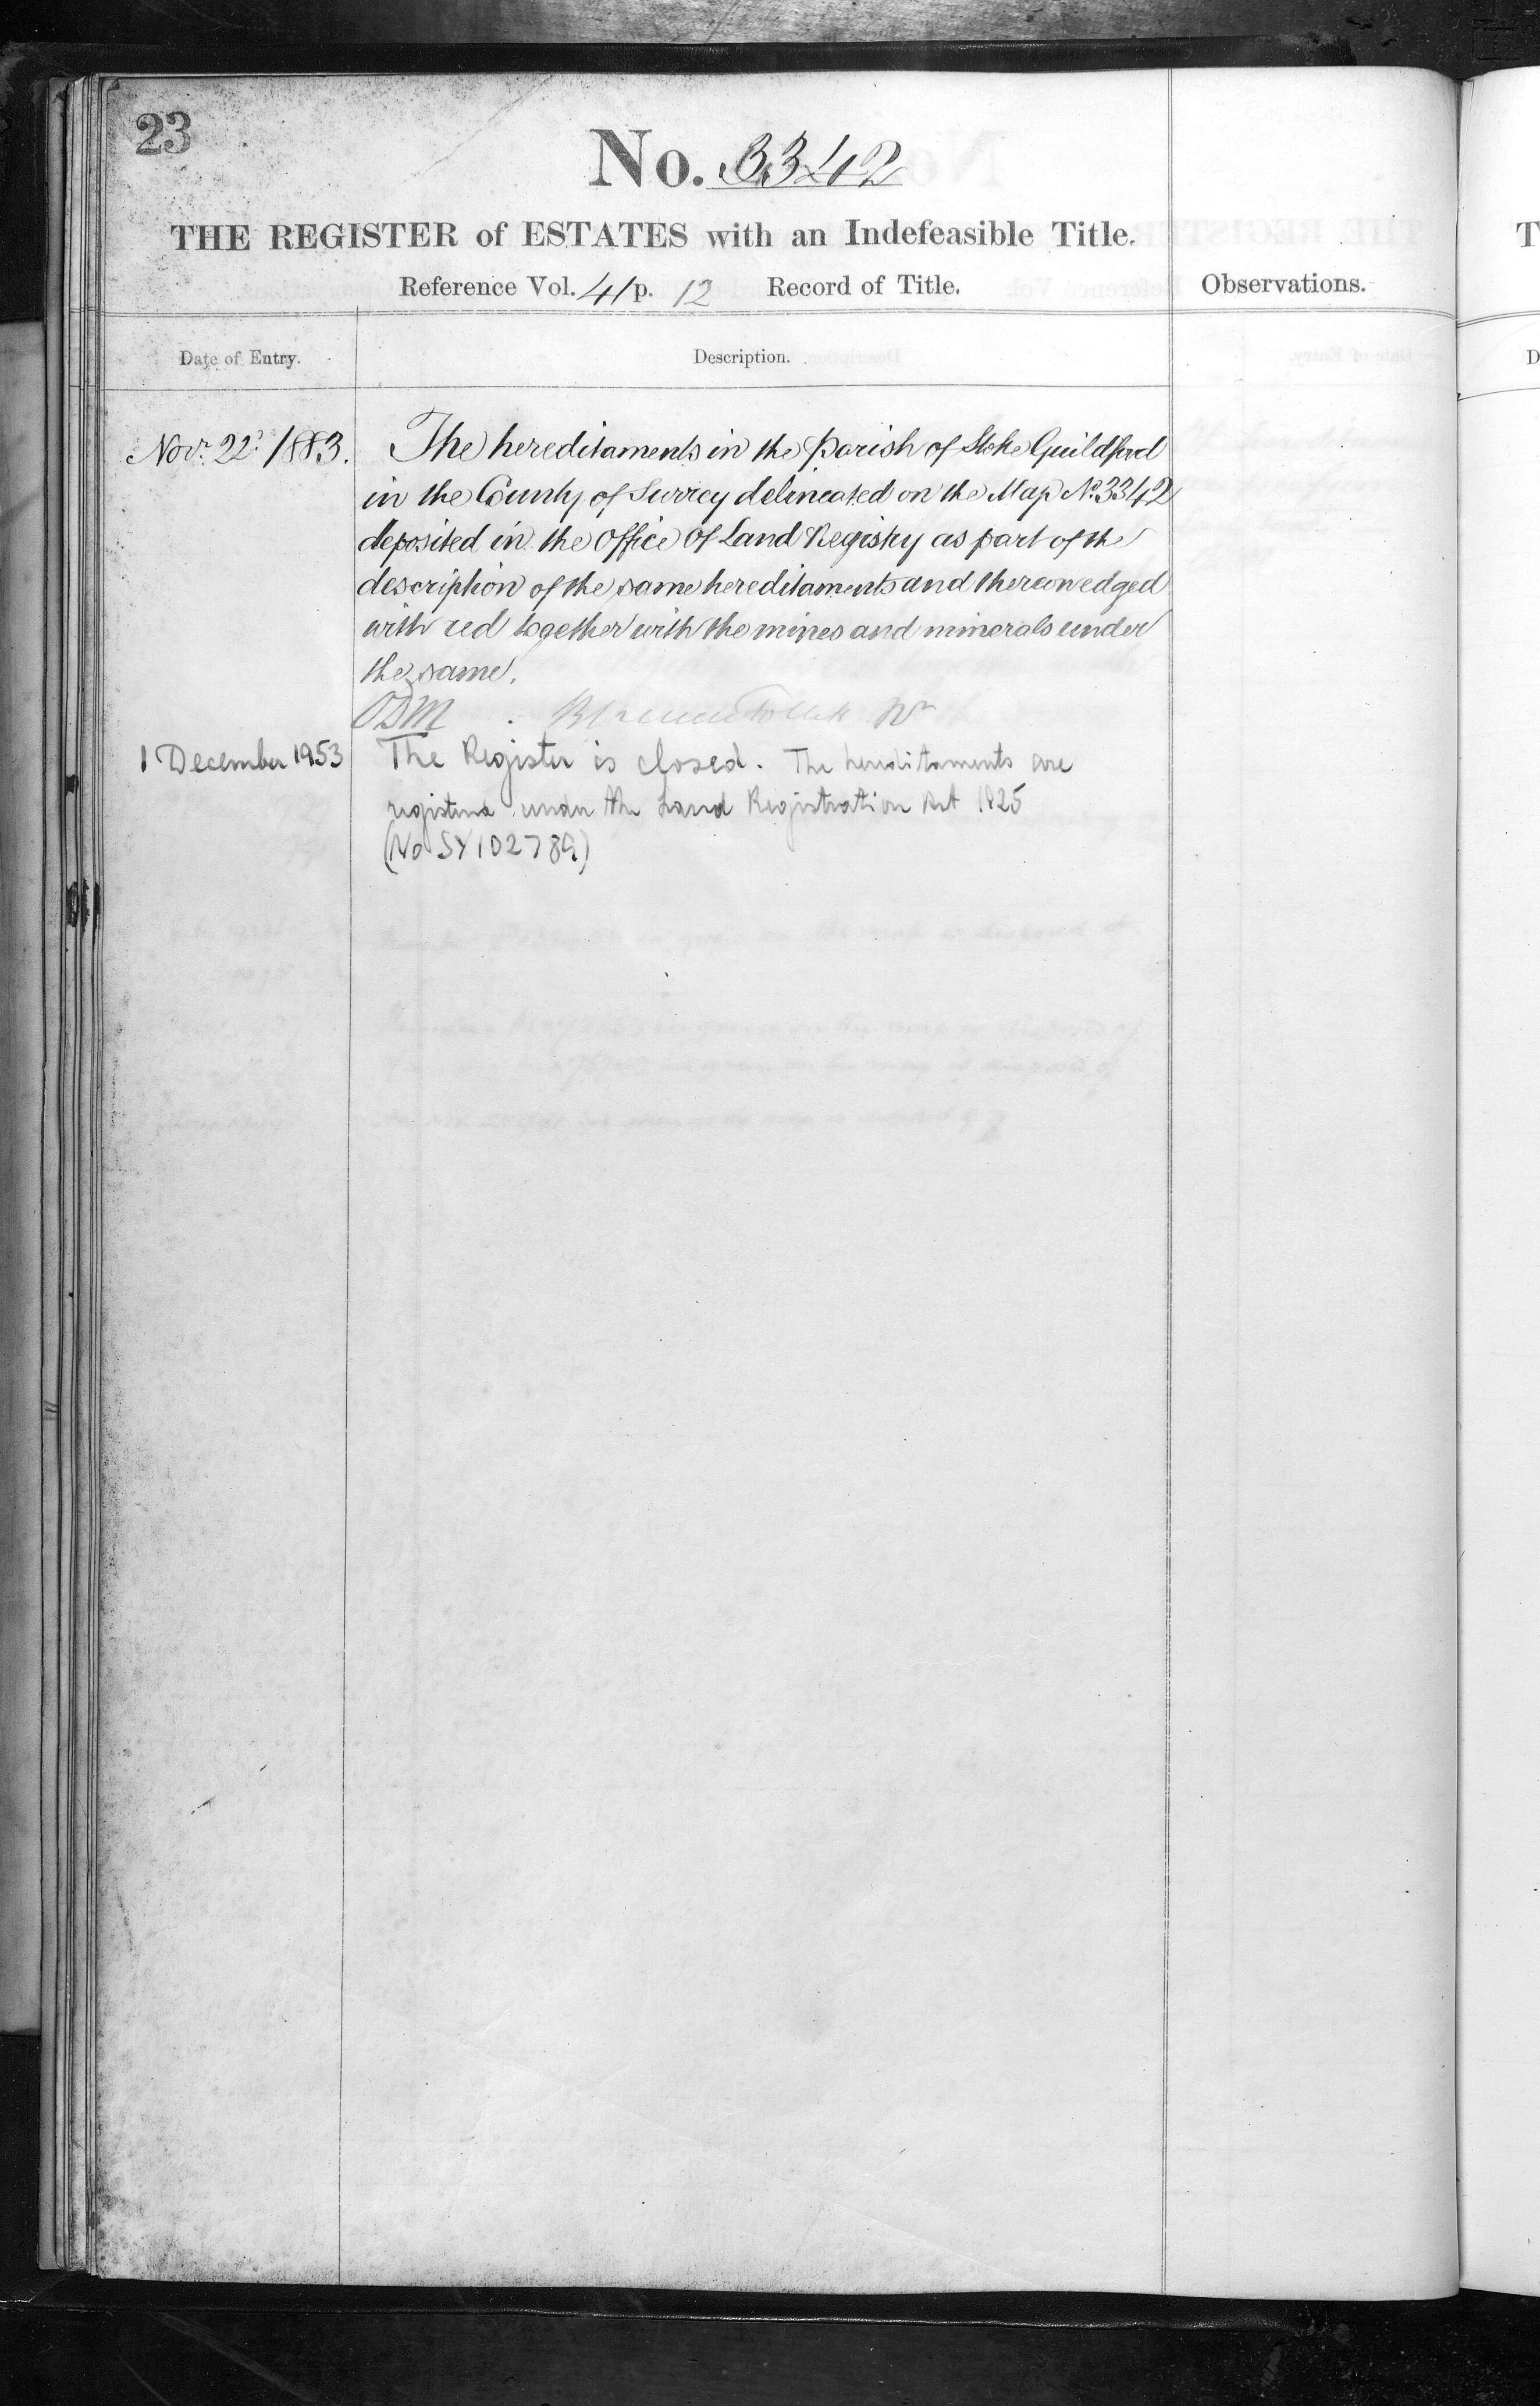 23
No. 3342
THE REGISTER of ESTATES with an Indefeasible Title.
Reference Vol. 4 p. 12 Record of Title.
Observations.
Date of Entry.
Description.
Novr. 22d 1883.
The hereditaments in the Parish of Stoke Guildford
in the County of Surrey delineated on the Map No. 3342
deposited in the Office of Land Registry as part of the
description of the same hereditaments and thereon edged
with red together with the mines and minerals under
the same.
1 December 1953
The Register is closed. The hereditaments are
registered under the Land Registration Act 1925
(No SY102789)